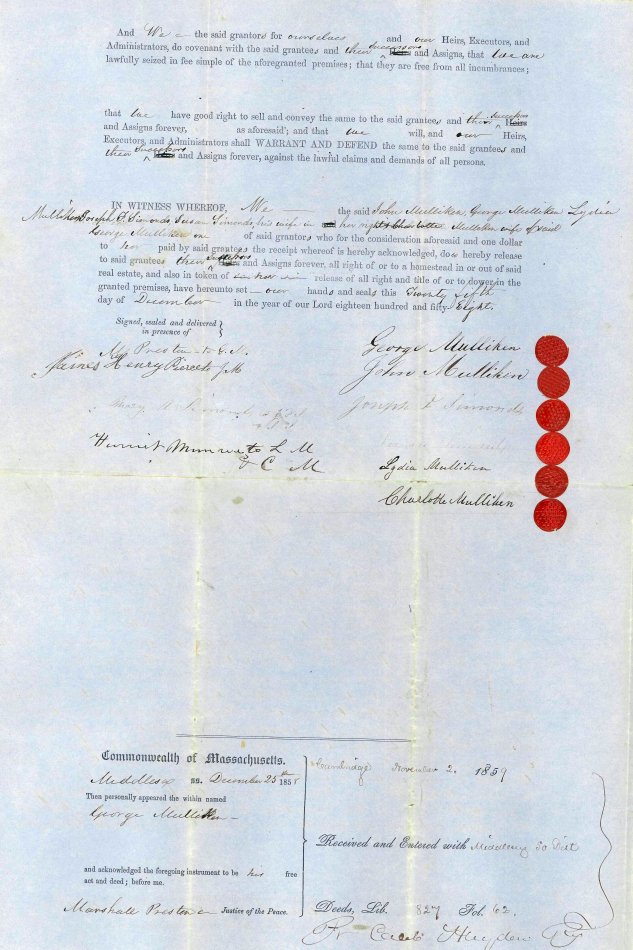 And We the said grantors for ourselves and our Heirs, Executors, and
Administrators, do covenant with the said grantees and their Successors and Assigns, that we are
lawfully seized in fee simple of the aforegranted premises; that they are free from all incumbrances;
that we have good right to sell and convey the same to the said grantees and their Successors Heirs
and Assigns forever, as aforesaid; and that we will, and our Heirs,
Executors, and Administrators shall WARRANT AND DEFEND the same to the said grantees and
their Successors and Assigns forever, against the lawful claims and demands of all persons.
IN WITNESS WHEREOF, We the said John Mulliken, George Mulliken Lydia
Mulliken Joseph F. Simonds, Susan Simonds, his wife in her right Charlotte Mulliken wife of said
George Mulliken one of said grantors who for the consideration aforesaid and one dollar
to her paid by said grantees the receipt whereof is hereby acknowledged, does hereby release
to said grantees their Successors and Assigns forever, all right of or to a homestead in or out of said
real estate, and also in token of release of all right and title of or to dower in the
granted premises, have hereunto set our hands and seals this Twenty fifth
day of December in the year of our Lord eighteen hundred and fifty Eight.
Signed, sealed and delivered
in presence of
Preston to G. M.
James Henry Pierce to J M
Mary A Simonds to J F S
Harriet Munroe to L M
& C M
George Mulliken
John Mulliken
Joseph F Simonds
Lydia Mulliken
Charlotte Mulliken
Commonwealth of Massachusetts.
Middlesex ss. December 25th 1858
Then personally appeared the within named
George Mulliken
and acknowledged the foregoing instrument to be his free
act and deed; before me.
Marshall Preston Justice of the Peace.
Cambridge November 2. 1859
Received and Entered with Middlesex So Dist
Deeds, Lib. 827 Fol. 62.
Caleb Hayden